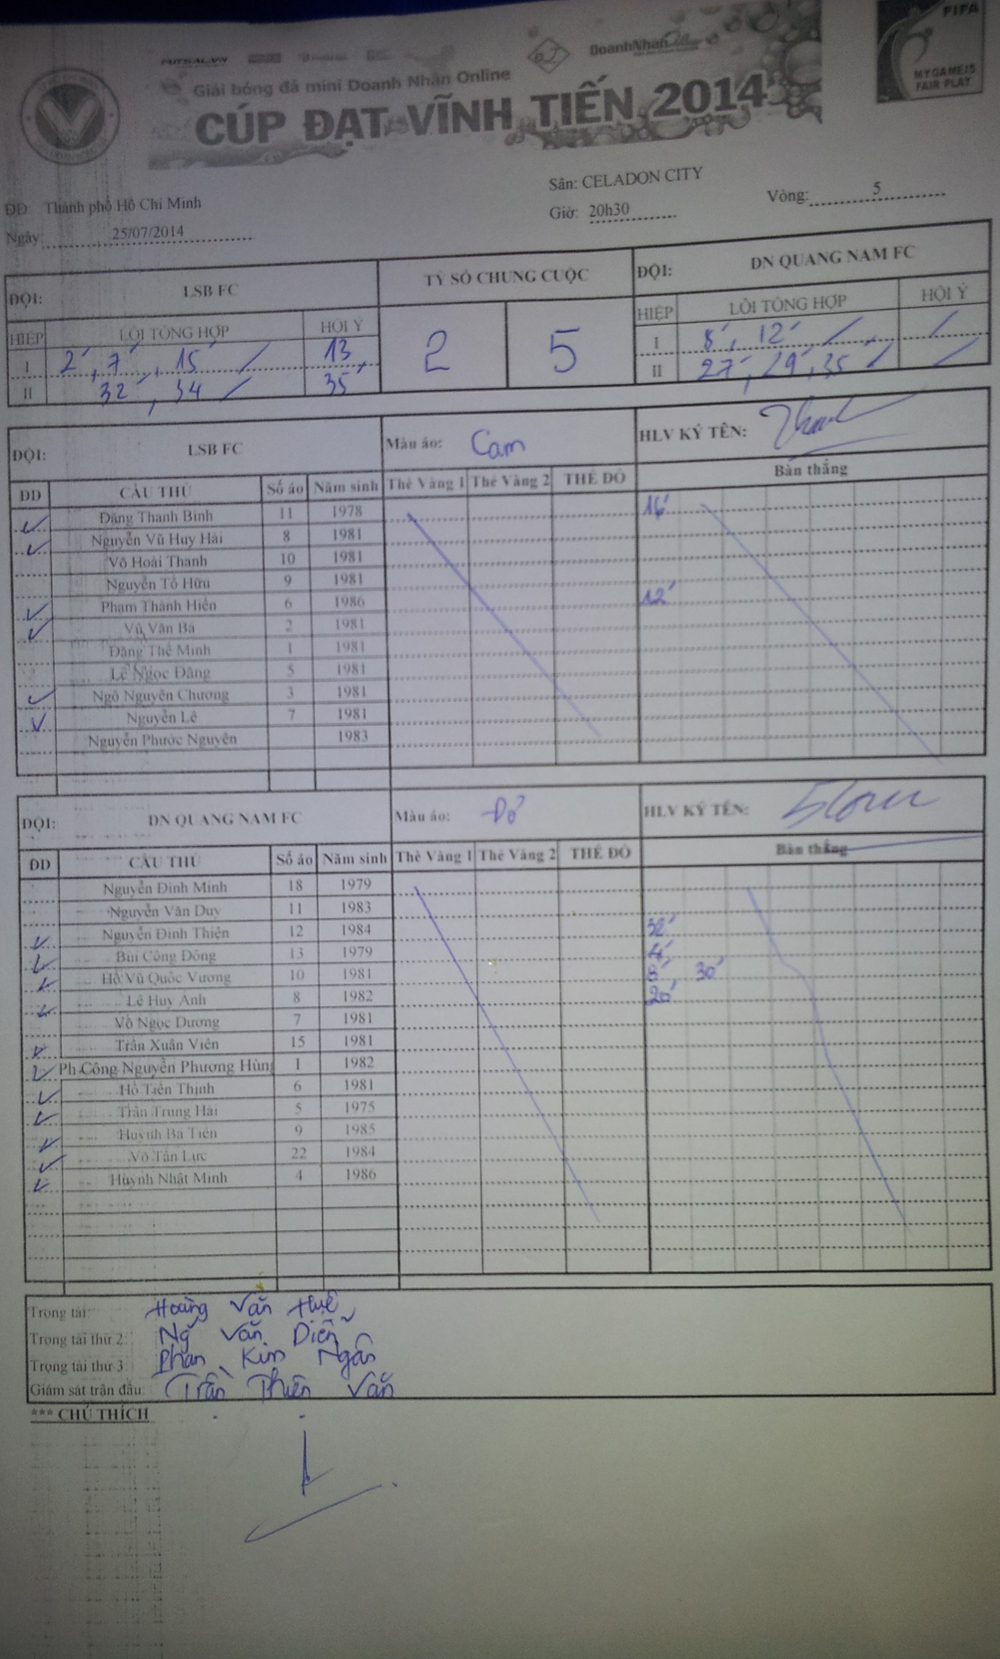 FUTSAL.VN
DoanhNhân
FIFA
MY GAME IS
FAIR PLAY
Giải bóng đá mini Doanh Nhân Online
CÚP ĐẠT VĨNH TIẾN 2014
ĐĐ: Thành phố Hồ Chí Minh Sân: CELADON CITY
Ngày: 25/07/2014 Giờ: 20h30 Vòng: 5
ĐỘI: LSB FC TỶ SỐ CHUNG CUỘC ĐỘI: DN QUANG NAM FC
HIỆP LỖI TỔNG HỢP HỘI Ý 2 5 HIỆP LỖI TỔNG HỢP HỘI Ý
I 2', 7', 15' / 13' I 8', 12' / /
II 32', 34' / 35' II 27', 29', 35' / /
ĐỘI: LSB FC Màu áo: Cam HLV KÝ TÊN:
ĐD CẦU THỦ Số áo Năm sinh Thẻ Vàng 1 Thẻ Vàng 2 THẺ ĐỎ Bàn thắng
✓ Đặng Thanh Bình 11 1978 16'
✓ Nguyễn Vũ Huy Hải 8 1981
Võ Hoài Thanh 10 1981
Nguyễn Tố Hữu 9 1981
✓ Phạm Thành Hiền 6 1986 12'
✓ Vũ Văn Bá 2 1981
Đặng Thế Minh 1 1981
Lê Ngọc Đăng 5 1981
✓ Ngô Nguyên Chương 3 1981
✓ Nguyễn Lê 7 1981
Nguyễn Phước Nguyên 1983
ĐỘI: DN QUANG NAM FC Màu áo: Đỏ HLV KÝ TÊN:
ĐD CẦU THỦ Số áo Năm sinh Thẻ Vàng 1 Thẻ Vàng 2 THẺ ĐỎ Bàn thắng
Nguyễn Đình Minh 18 1979
Nguyễn Văn Duy 11 1983
✓ Nguyễn Đình Thiện 12 1984 32'
✓ Bùi Công Đông 13 1979 4'
✓ Hồ Vũ Quốc Vương 10 1981 8' 30'
✓ Lê Huy Anh 8 1982 20'
Võ Ngọc Dương 7 1981
✓ Trần Xuân Viên 15 1981
✓ Ph Công Nguyễn Phương Hùng 1 1982
✓ Hồ Tiến Thịnh 6 1981
✓ Trần Trung Hải 5 1975
✓ Huỳnh Bá Tiên 9 1985
✓ Võ Tấn Lực 22 1984
✓ Huỳnh Nhật Minh 4 1986
Trọng tài: Hoàng Văn Huệ
Trọng tài thứ 2: Ng Văn Diễn
Trọng tài thứ 3: Phan Kim Ngân
Giám sát trận đấu: Trần Thiện Văn
*** CHÚ THÍCH